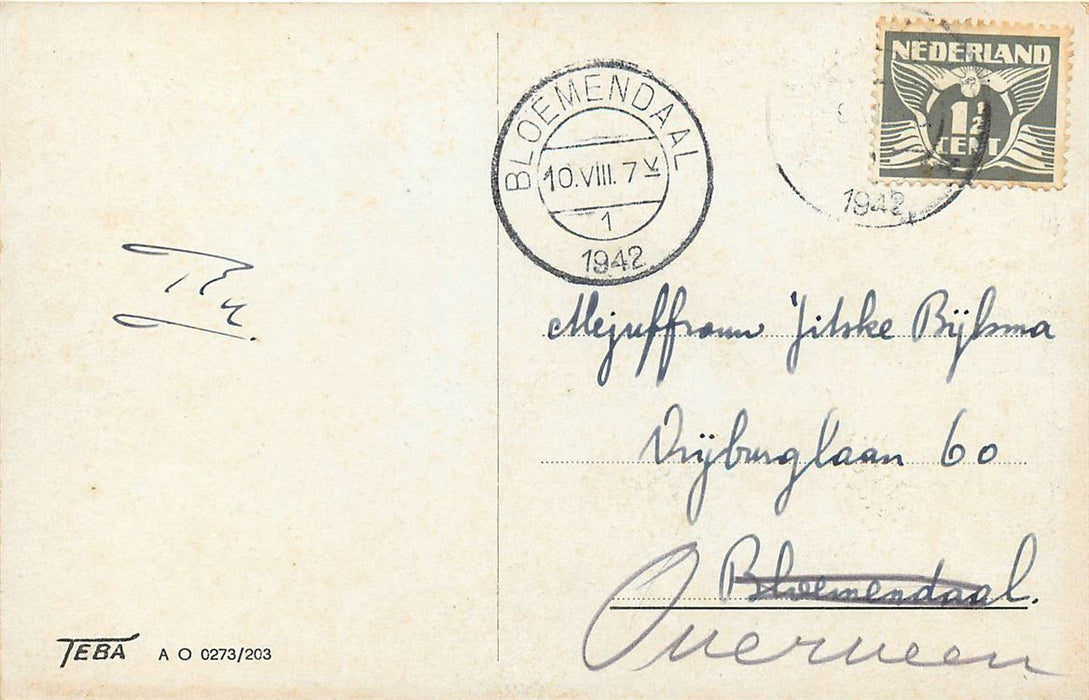 NEDERLAND
1½
CENT
BLOEMENDAAL
10.VIII. 7 K
1
1942
1942
Mejuffrouw Jitske Bijlsma
Vrijburglaan 60
Bloemendaal.
Overveen
TEBA A O 0273/203